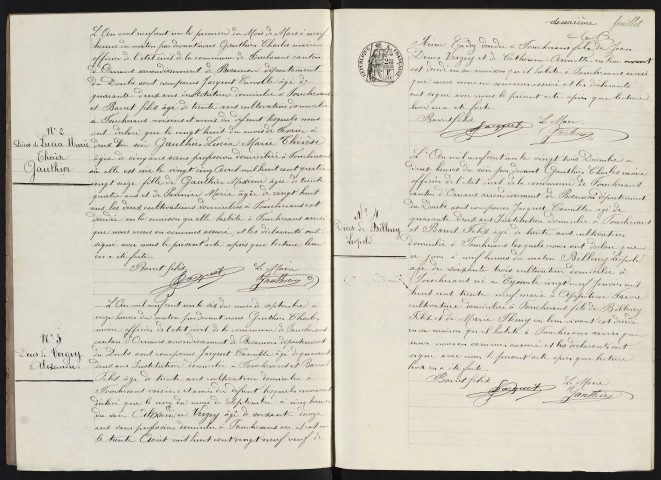 L'An mil neuf cent un le premier du mois de Mars à neuf
heures du matin par devant nous Gauthier Charles maire
officier de l'état civil de la commune de Fouchrans canton
de Ornans arrondissement de Besançon département
du Doubs sont comparus Jacquet Camille âgé de
quarante deux ans Instituteur domicilié à Fouchrans
et Barret Félix âgé de trente ans cultivateur domicilié
à Fouchrans voisins et amis du défunt lesquels nous
ont déclaré que le vingt huit du mois de Février à
du soir Gauthier Lucia Marie Thérèse
âgée de cinq ans sans profession domiciliée à Fouchrans
où elle est née le vingt cinq Avril mil huit cent quatre
vingt seize fille de Gauthier Maxime âgé de trente
quatre ans et de Marie âgée de vingt huit
ans les deux cultivateurs domiciliés à Fouchrans est
décédée en la maison qu'elle habite à Fouchrans ainsi
que nous nous en sommes assuré et les déclarants ont
signé avec nous le présent acte après que lecture leur
en a été faite.
N° 2
Décès de Lucia Marie
Thérèse
Gauthier
Barret félix Jacquet Le Maire
Gauthier
L'An mil neuf cent un le six du mois de septembre à
onze heures du matin pardevant nous Gauthier Charles,
maire officier de l'état civil de la commune de Fouchrans
canton d'Ornans arrondissement de Besançon département
du Doubs sont comparus Jacquet Camille âgé de quarante
deux ans Instituteur domicilié à Fouchrans et Barret
Félix âgé de trente ans cultivateur domicilié à
Fouchrans voisins et amis du défunt lesquels nous ont
déclaré que le cinq du mois de Septembre à cinq heures
du soir Alexandre Vergey âgé de soixante douze
ans sans profession domicilié à Fouchrans où il est né
le trente Août mil huit cent vingt neuf veuf de
N° 3
Décès de Vergey
Alexandre
deuxième feuillet
domicilié à Fouchrans fils de Jean
Denis Vergey et de Catherine
est décédé en sa maison qu'il habite à Fouchrans ainsi
que nous nous en sommes assuré et les déclarants
ont signé avec nous le présent acte après que lecture
leur en a été faite.
Barret félix Jacquet Le Maire
Gauthier
L'An mil neuf cent un le vingt trois Décembre à
deux heures du soir par devant Gauthier Charles maire
officier de l'état civil de la commune de Fouchrans
canton d'Ornans arrondissement de Besançon département
du Doubs sont comparus Jacquet Camille âgé de
quarante deux ans Instituteur domicilié à Fouchrans
et Barret Félix âgé de trente ans cultivateur
domicilié à Fouchrans lesquels nous ont déclaré que
ce jour à neuf heures du matin Billerey Léopold
âgé de soixante trois cultivateur domicilié à
Fouchrans né à Eysson le vingt sept janvier mil
huit cent trente neuf marié à Faivre
cultivatrice domiciliée à Fouchrans fils de Billerey
Félix et de Marie Fleury est décédé
en sa maison qu'il habite à Fouchrans ainsi que
nous nous en sommes assuré et les déclarants ont
signé avec nous le présent acte après que lecture
leur en a été faite.
N° 4
Décès de Billerey
Léopold
Barret félix Jacquet Le Maire
Gauthier